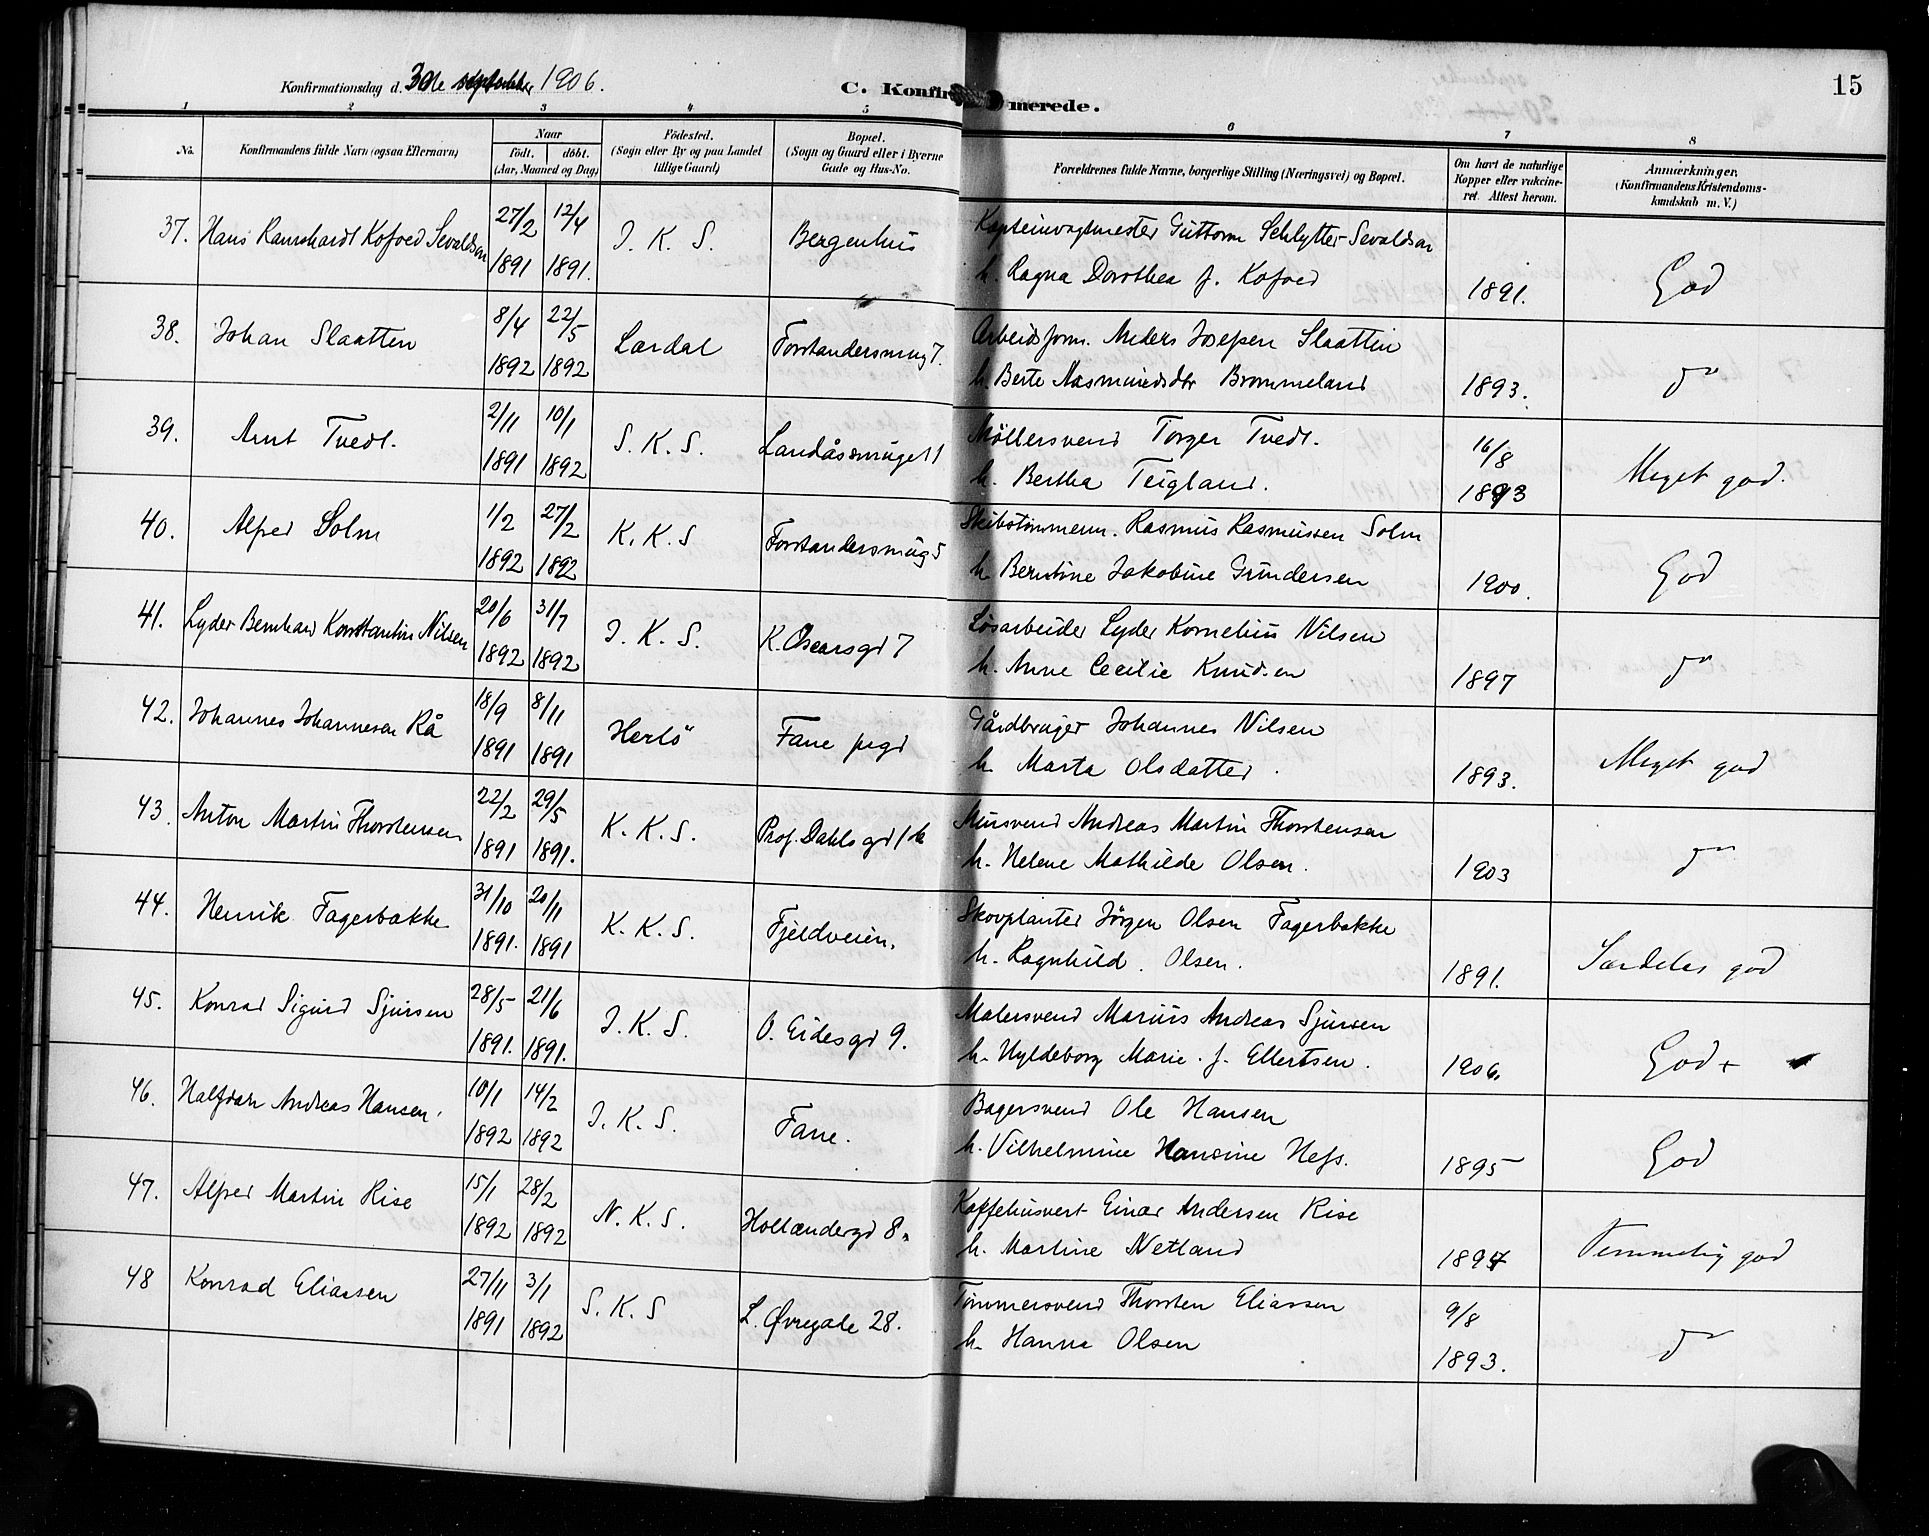 Konfirmationsdag d. 30te september 1906.
C. Konfirmerede.
15
1 2 3 4 5 6 7 8
No.
Konfirmandens fulde Navn (ogsaa Efternavn)
Naar
födt. döbt.
(Aar, Maaned og Dag)
Födested.
(Sogn eller By og paa Landet
tillige Gaard)
Bopæl.
(Sogn og Gaard eller i Byerne
Gade og Hus-No.
Forældrenes fulde Navne, borgerlige Stilling (Næringsvei) og Bopæl.
Om havt de naturlige
Kopper eller vakcine-
ret. Attest herom.
Anmærkninger.
(Konfirmandens Kristendoms-
kundskab m. V.)
37. Hans Kofoed Sevaldson 27/2 1891 12/4 1891. J. K. S. Bergenhus
Guttorm Schlytter Sevaldson
h. Ragna Dorothea f. Kofoed 1891. God
38. Johan Slaatten 8/4 1892 22/5 1892 Lærdal Forstandersmug 7.
Arbeidsform. Anders Josefsen Slaatten
h. Berte Rasmusdtr Brommeland 1893. do
39. Arnt Tvedt. 2/11 1891 10/1 1892 S. K. S. Landåssmuget 1
Möllersvend Torger Tvedt.
h. Bertha Teigland. 16/8 1893 Meget god.
40. Alfred Solm 1/2 1892 27/2 1892 K. K. S Forstandersmug 5
Skibstömmerm. Rasmus Rasmussen Solm
h. Berntine Jakobine Gundersen 1900. God
41. Lyder Bernhard Konstantin Nilsen 20/6 1892 31/7 1892 J. K. S. K. Oscarsgd 7
Lösarbeider Lyder Kornelius Nilsen
h. Anne Cecilie Knudsen 1897 do
42. Johannes Johannesen Rå 18/9 1891 8/11 1891 Herlö Fane prgd
Gårdbruger Johannes Nilsen
h. Marta Olsdatter. 1893. Meget god
43. Anton Martin Thorstensen 22/2 1891 29/5 1891. K. K. S. Prof. Dahls gd
Mursvend Andreas Martin Thorstensen
h. Helene Mathilde Olsen. 1903 do
44. Henrik Fagerbakke 31/10 1891. 20/11 1891 K. K. S. Fjeldveien.
Skovplanter Jörgen Olsen Fagerbakke
h. Ragnhild. Olsen. 1891. Særdeles god
45. Konrad Sigurd Sjursen 28/5 1891. 21/6 1891. J. K. S. O. Eidesgd 9.
Malersvend Marius Andreas Sjursen
h. Hyldeborg Marie. f. Ellertsen. 1906. God +
46. Halfdan Andreas Hansen. 10/1 1892 14/2 1892 J. K. S. Fane.
Bagersvend Ole Hansen
h. Vilhelmine Hansine Hess. 1895 God
47. Alfred Martin Rise 15/1 1892 28/2 1892 N. K. S. Hollændergd 8
Kaffehusvert Einar Andersen Rise
h. Martine Netland 1894 Temmelig god
48 Konrad Eliassen 27/11 1891 3/1 1892 S. K. S L. Øvregate 28.
Tömmersvend Thorsten Eliassen
h. Hanna Olsen 9/8 1893. do